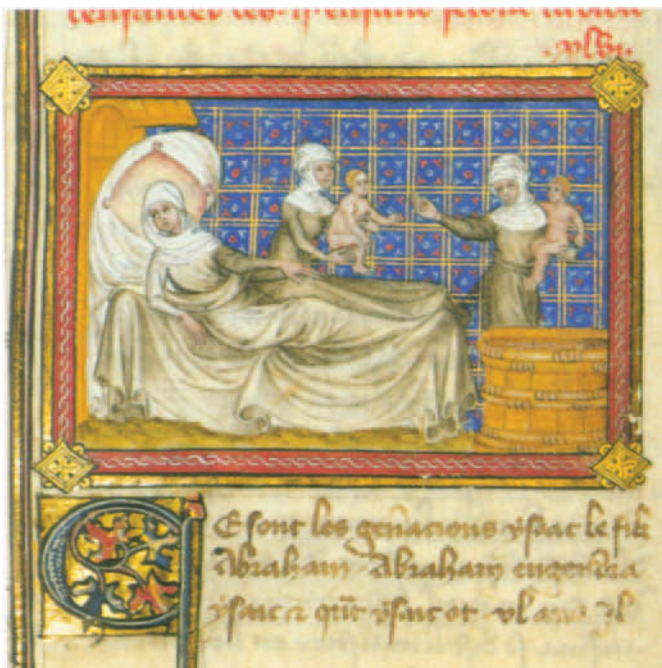 les .ij. enfans
.xlvi.
Ce sont les gen̄acions ysaac le filz
Abraham Abraham engendra
ysaac & qn̄t ysaac ot .xl. ans il